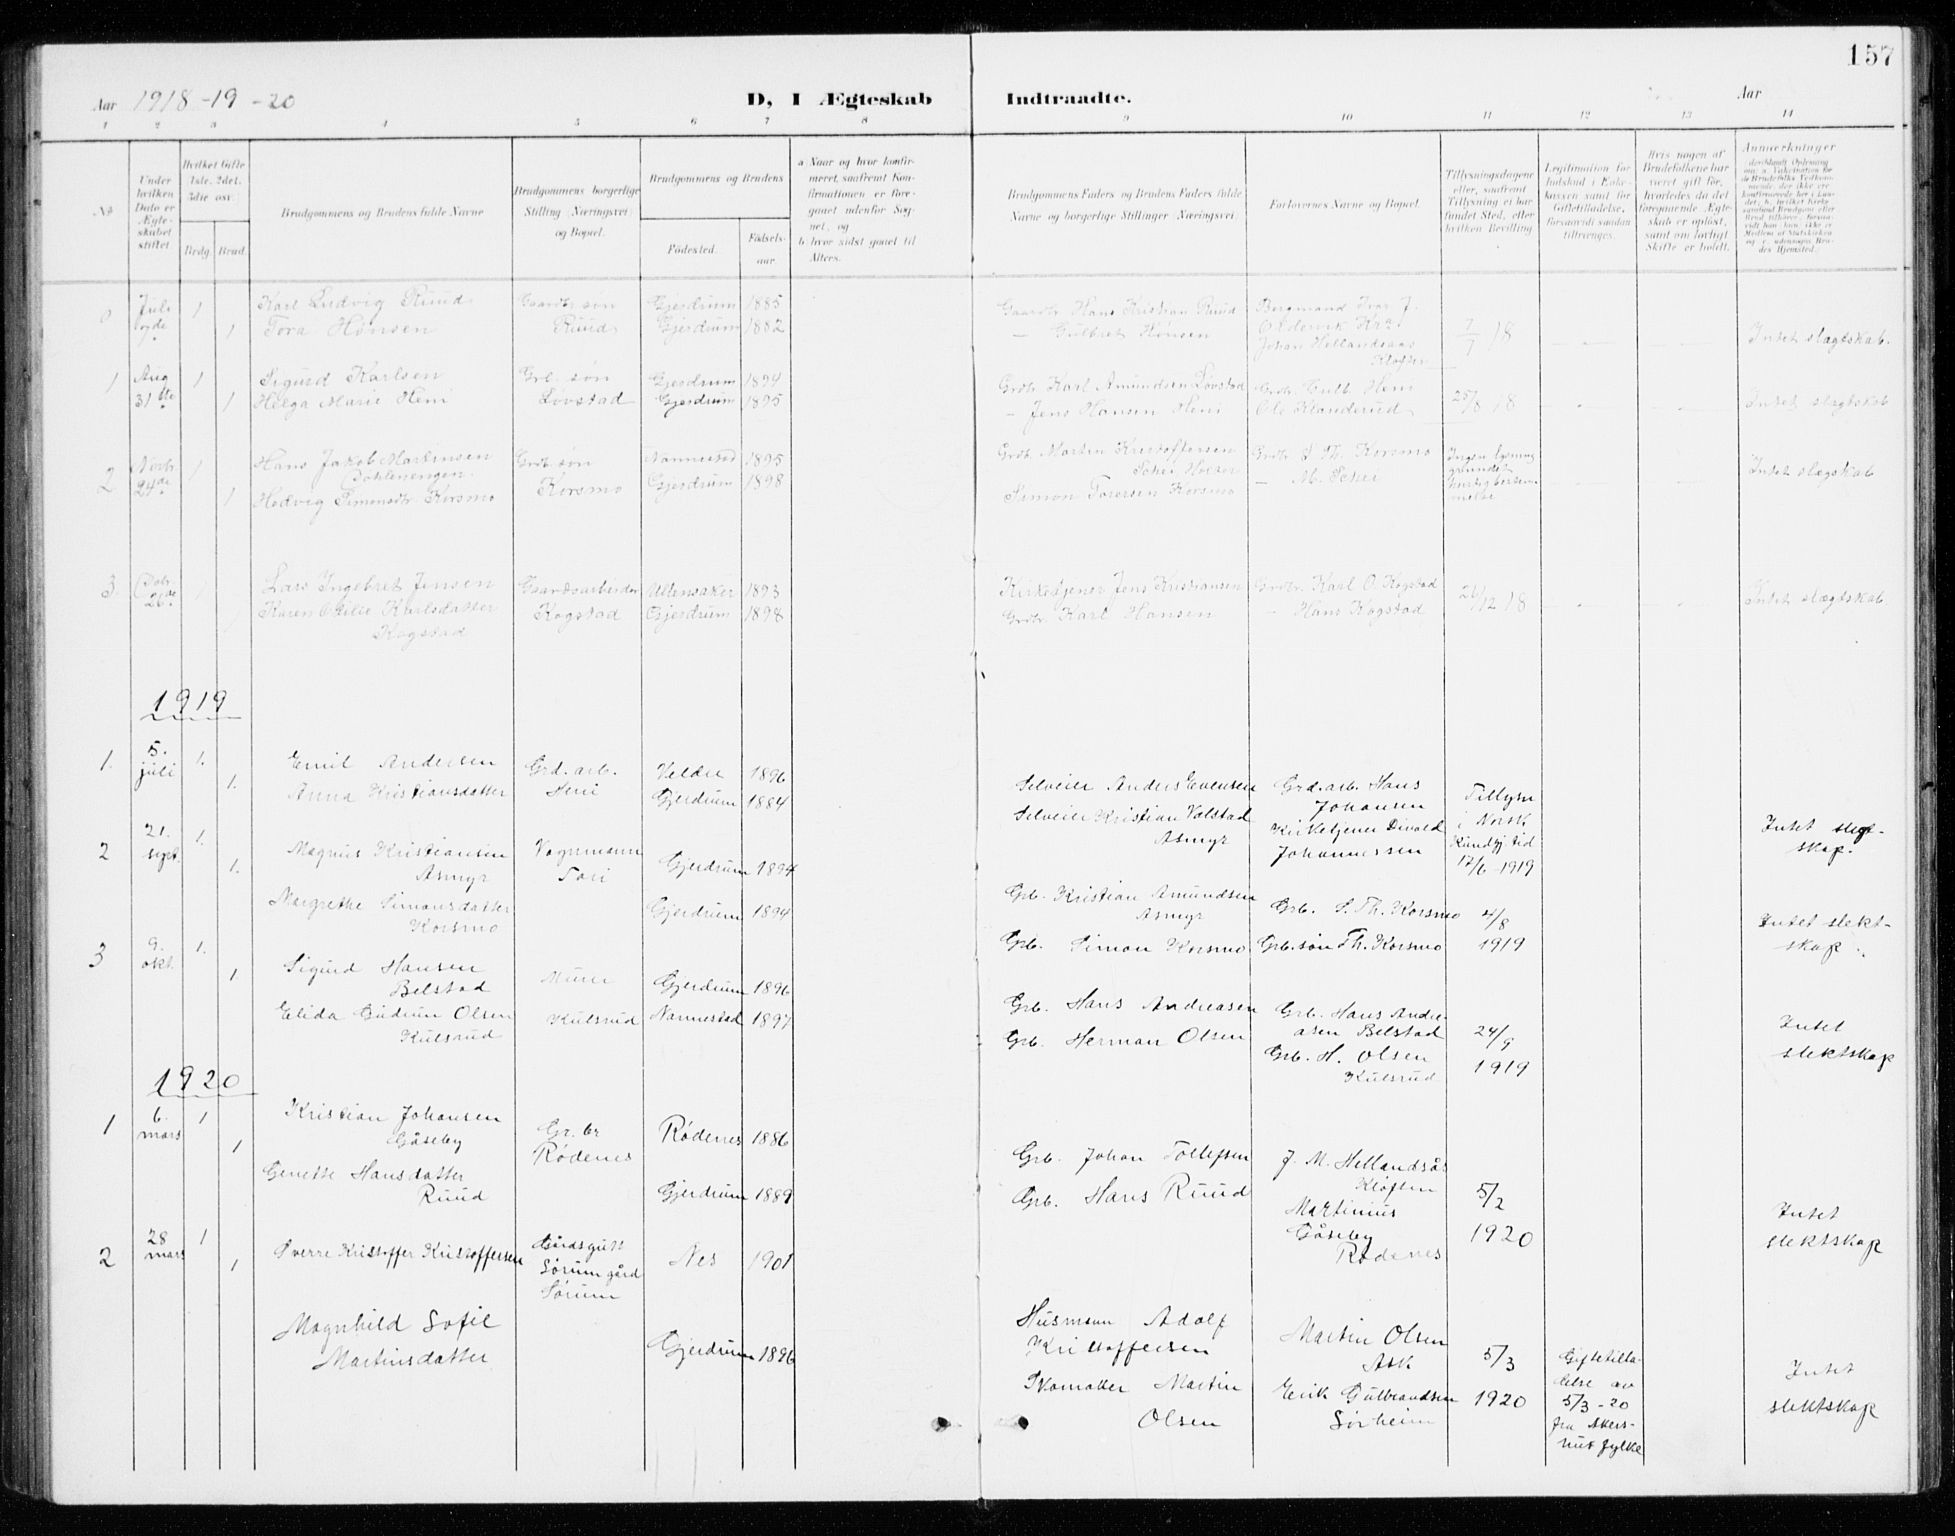 157
Aar 1918-19-20
D, I Ægteskab Indtraadte.
Aar
1 2 3 4 5 6 7 8 9 10 11 12 13 14
No.
Under hvilken Dato er Ægteskabet stiftet
Hvilket Gifte 1ste, 2det, 3die osv.
Brdg. Brud.
Brudgommens og Brudens fulde Navne
Brudgommens borgerlige Stilling (Næringsvei) og Bopæl.
Brudgommens og Brudens
Fødested. Fødselsaar.
a. Naar og hvor konfirmeret, saafremt Konfirmationen er foregaaet udenfor Sognet, og
b. hvor sidst gaaet til Alters.
Brudgommens Faders og Brudens Faders fulde Navne og borgerlige Stillinger (Næringsvei)
Forlovernes Navne og Bopæl.
Tillysningsdagene eller, saafremt Tillysning ei har fundet Sted, efter hvilken Bevilling
Legitimation for Indskud i Enkekassen samt for Giftetilladelse, forsaavidt saadan tiltrænges.
Hvis nogen af Brudefolkene har været gift før, hvorledes da det foregaaende Ægteskab er opløst, samt om lovligt Skifte er holdt.
Anmærkninger
Juli
1
Karl Ludvig Ruud
Gaardbr. søn
Gjerdrum 1885
Gaardbr. Hans Kristian Ruud
Bergmand Ivar J.
1
Tora Hønsen
Ruud
Gjerdrum 1882
— Gulbret Hønsen
Johan Hellandsaas
Kløften
7/7 18
Intet slægtskab.
1
Aug 31te
1
Sigurd Karlsen
Grb. søn
Gjerdrum 1894
Grdbr. Karl Amundsen Løvstad
1
Helga Marie Heni
Løvstad
Gjerdrum 1895
— Jens Hansen Heni
Ole Klanderud
25/8 18
Intet slægtskab
2
Novbr. 24de
1
Hans Jakob Martinsen
Grdb. søn
Nannestad 1895
Grdb. Morten Kristoffersen
Grdbr S. Th. Korsmo
1
Hedvig Simensdtr. Korsmo
Korsmo
Gjerdrum 1898
Simon Toversen Korsmo
— M. Schei
Ingen lysning grundet
Intet slægskab
3
26de
1
Lars Ingebret Jensen
Gaardsarbeider
Ullensaker 1893
Kirketjener Jens Kristiansen
Grdbr. Karl O. Kogstad
Karen Otilie Karlsdatter
Kogstad
Kogstad
Gjerdrum 1898
Grdbr. Karl Hansen
— Hans Kogstad
26/12 18
Intet slægtskab.
1919
1.
5. juli
1.
Emil Andersen
Grd. arb.
Veldre 1896
Selveier Anders Evensen
Grd. arb. Hans
Johansen
1.
Anna Kristiansdatter
Heni
Gjerdrum 1884
Selveier Kristian Valstad
Asmyr
Kirketjener Divald
Johannessen
Tillysn
i Norsk
Kundgj. tid
17/6 - 1919
Intet slegt-
skap.
2
21. sept.
1.
Magnus Kristiansen
Asmyr
Vognmann
Tori
Gjerdrum 1894
Grb. Kristian Amundsen
Asmyr
Grb. S. Th. Korsmo
4/8
1.
Margrethe Simonsdatter
Korsmo
Gjerdrum 1894
Grb. Simon Korsmo
Grb. søn Th. Korsmo
1919
Intet slekt-
skap.
3
9. okt.
1.
Sigurd Hansen
Belstad
Murer
Gjerdrum 1896
Grb. Hans Andreasen
Grb. Hans Andre-
asen Belstad
24/9
1
Elida Gudrun Olsen
Kulsrud
Kulsrud
Nannestad 1897
Grb. Herman Olsen
Grb. H. Olsen
Kulsrud
1919
Intet
slektskap
1920
1
6. mars
1
Kristian Johansen
Gåseby
Gr. br
Rødenes
Rødenes 1886
Grb. Johan Tollefsen
J. M. Hellandsås
Kløften
5/2
1
Genette Hansdatter
Ruud
Gjerdrum 1889
Grb. Hans Ruud
Martinius
Gåseby
Rødenes
1920
Intet
slektskap
2
28 mars
1
Sverre Kristoffer Kristoffersen
Gårdsgutt
Sørum gård
Sørum
Nes 1901
Husmann Adolf
Kristoffersen
Martin Olsen
Ask
5/3
1
Magnhild Sofie
Martinsdatter
Gjerdrum 1896
Skomaker Martin
Olsen
Erik Gulbrandsen
Sørheim
1920
Giftetilla-
delse av
5/3 - 20
fra Akers-
hus fylke
Intet
slektskap